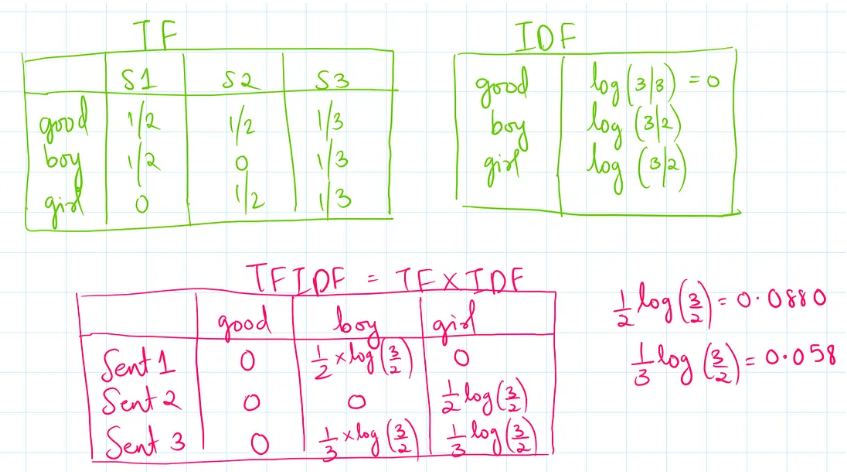 TF
S1 S2 S3
good 1/2 1/2 1/3
boy 1/2 0 1/3
girl 0 1/2 1/3
IDF
good log(3/3) = 0
boy log(3/2)
girl log(3/2)
TFIDF = TF X IDF
good boy girl
Sent 1 0 1/2 x log(3/2) 0
Sent 2 0 0 1/2 log(3/2)
Sent 3 0 1/3 x log(3/2) 1/3 log(3/2)
1/2 log(3/2) = 0.0880
1/3 log(3/2) = 0.058